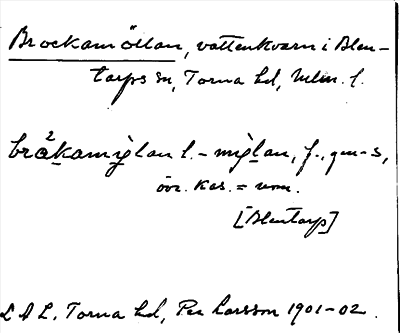 Brockamöllan, vattenkvarn i Blen-
tarps sn, Torna hd, Mlm. l.
brå²kami̮lan l. -mi̮lan, f., gen -s,
övr. kas. = nom.
[Blentarp]
L A L, Torna hd, Per Larsson 1901-02.